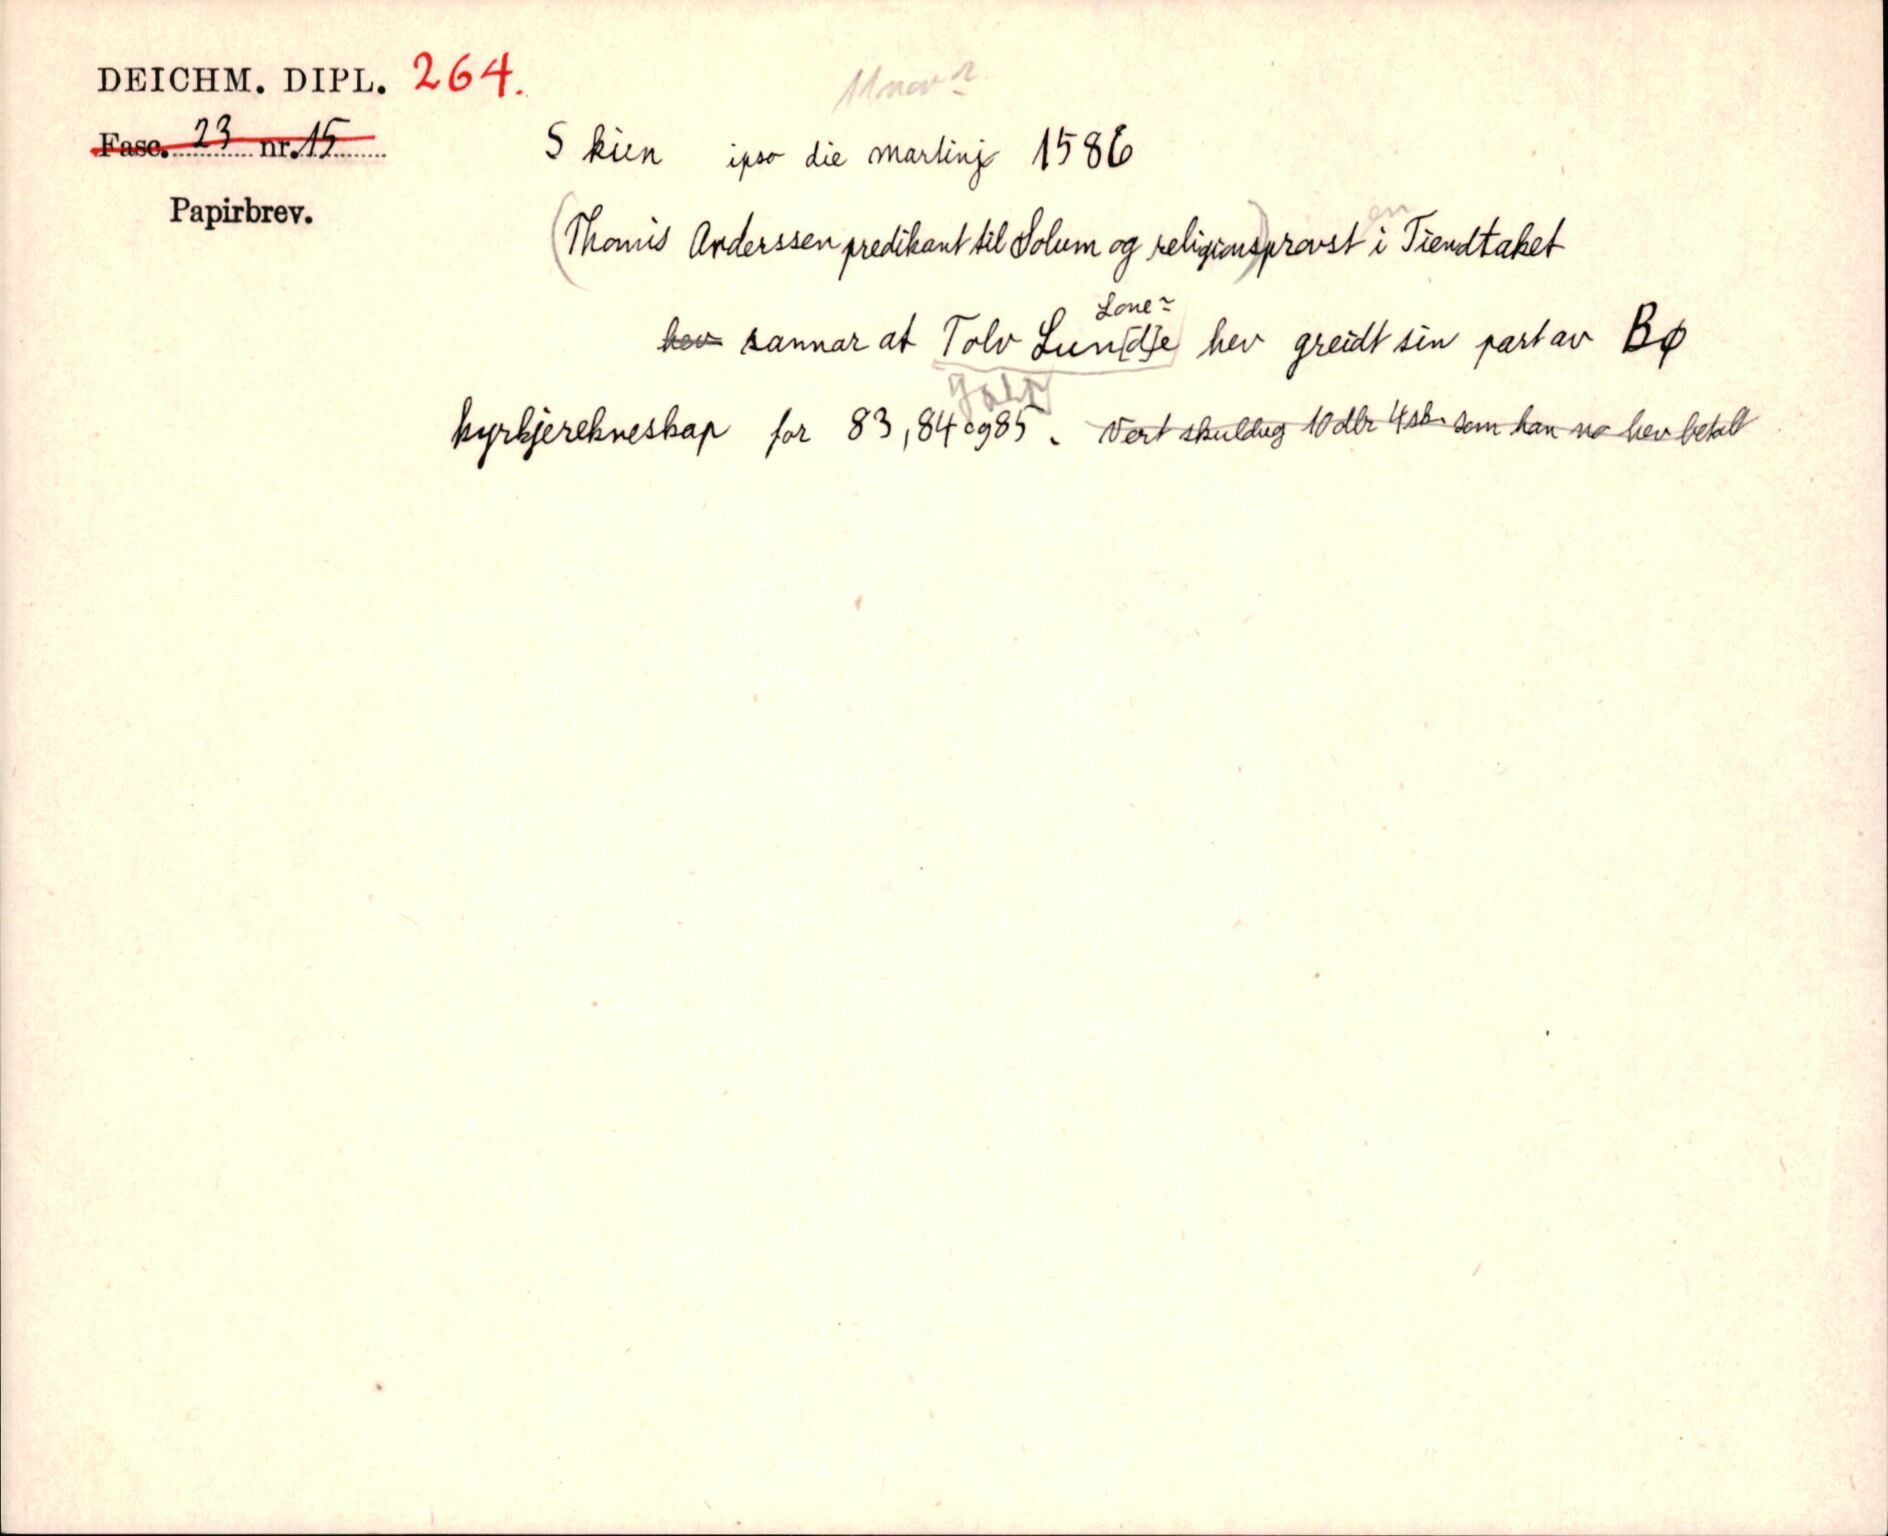 DEICHM. DIPL. 264.
11 nov
Fasc. 23 nr. 15
Skien ipso die martinj 1586
Papirbrev.
(Thomis Anderssen predikant til Solum og religions)provst i Tiendtaket
en
Lone
hev sannar at Tolv Lun[d]e hev greidt sin part av Bø
kyrkjerekneskap for 83, 84 og 85. Vert skuldug 10 dlr 4 sk. som han no hev betalt